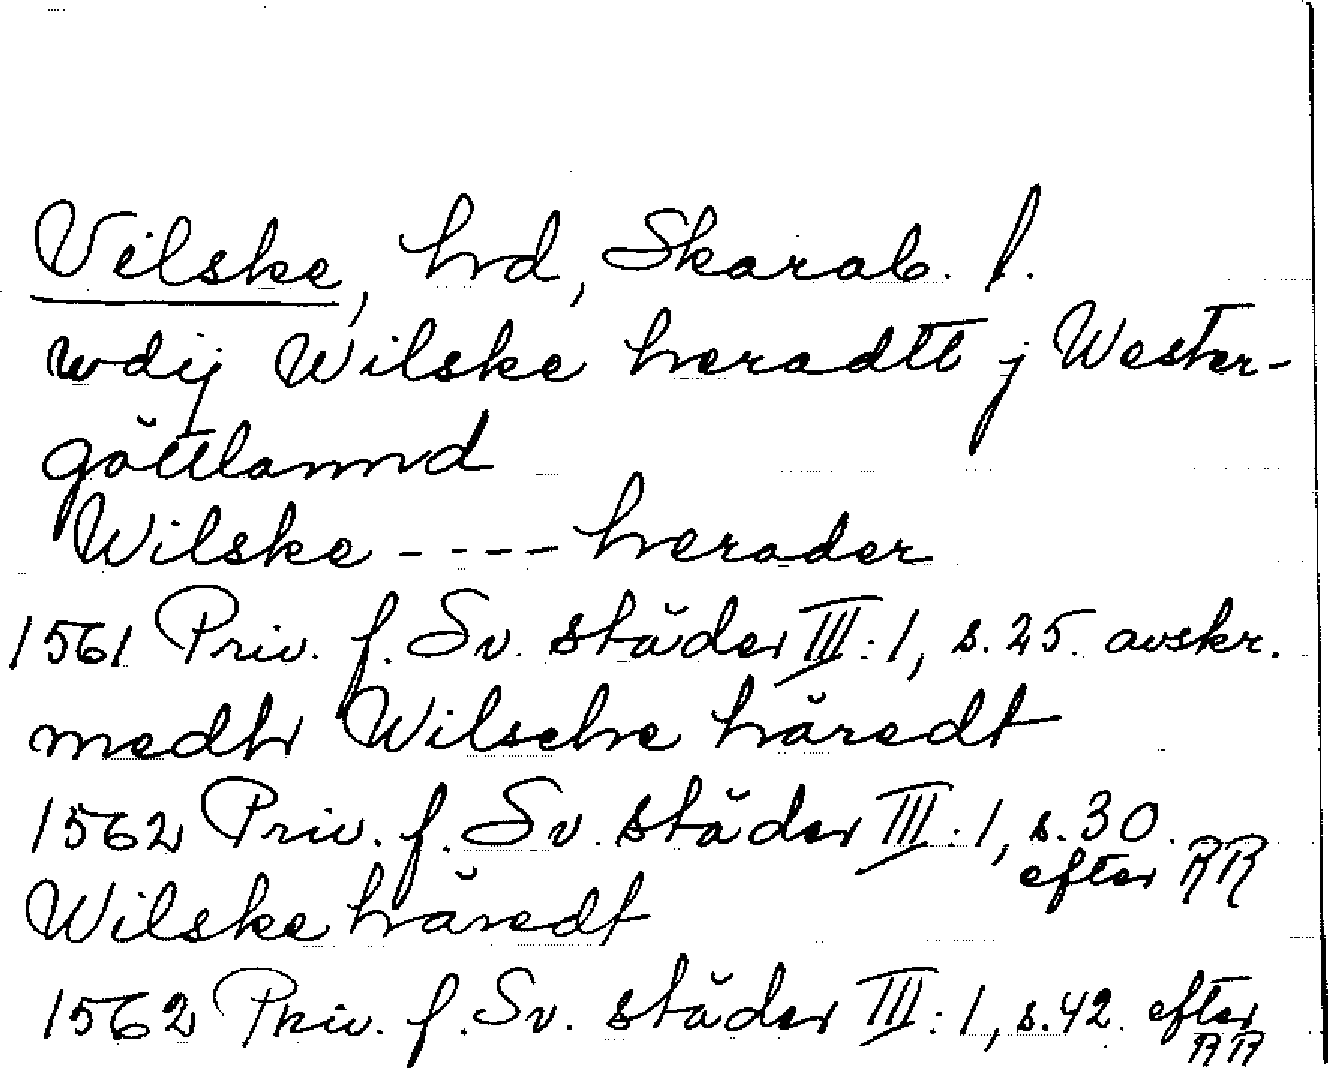 Vilske, hrd, Skarab. l.
wdij Wilske heradtt j Wester-
göttlannd
Wilske ---- herader
1561 Priv. f. Sv. städer III:1, s. 25. avskr.
medh Wilsche häredt
1562 Priv. f. Sv. städer III:1, s. 30.
efter RR
Wilske häredt
1562 Priv. f. Sv. städer III:1, s. 42. efter
RR